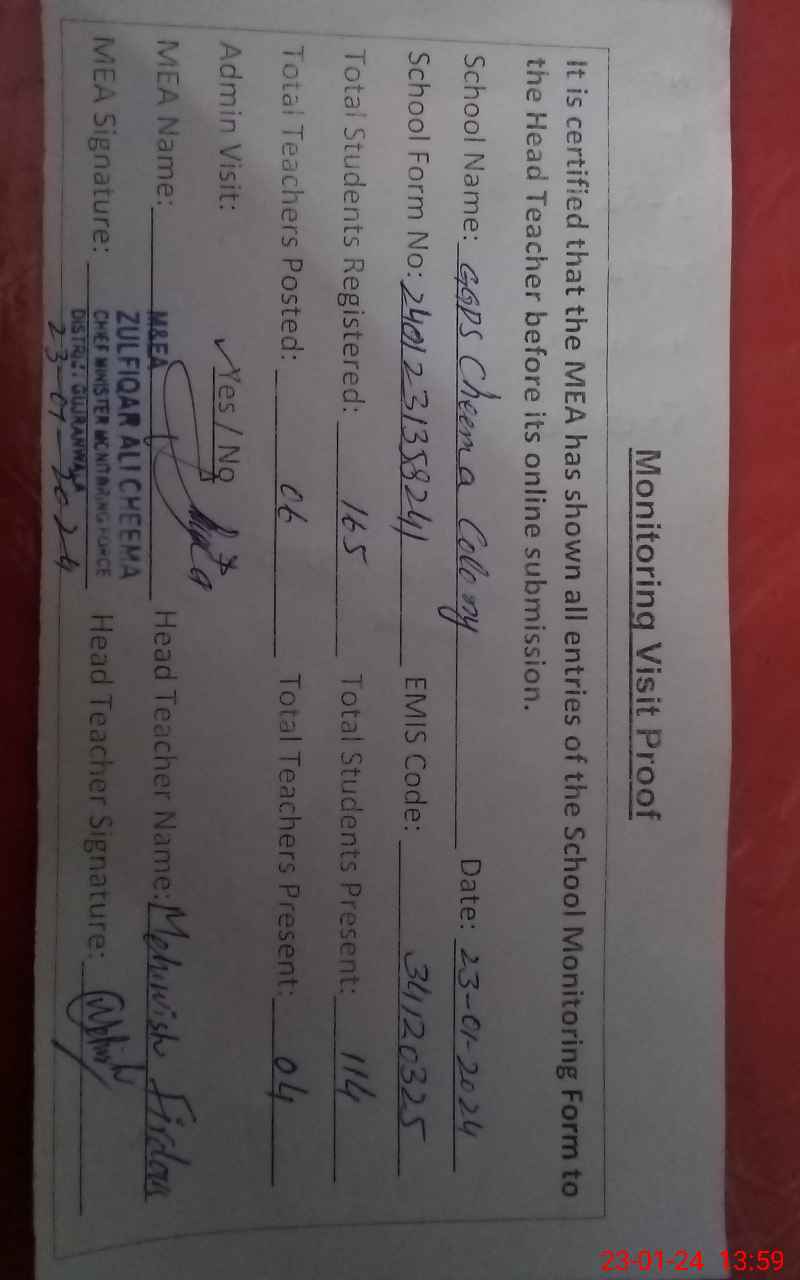 Monitoring Visit Proof
It is certified that the MEA has shown all entries of the School Monitoring Form to
the Head Teacher before its online submission.
School Name: GGPS Cheema Colony Date: 23-01-2024
School Form No: 2401231358241 EMIS Code: 34120325
Total Students Registered: 165 Total Students Present: 114
Total Teachers Posted: 06 Total Teachers Present: 04
Admin Visit: ✓Yes / No
MEA Name: M&EA Head Teacher Name: Mehwish Firdous
ZULFIQAR ALI CHEEMA
CHIEF MINISTER MONITORING FORCE
MEA Signature: DISTRICT GUJRANWALA Head Teacher Signature:
23-01-2024
23-01-24 13:59